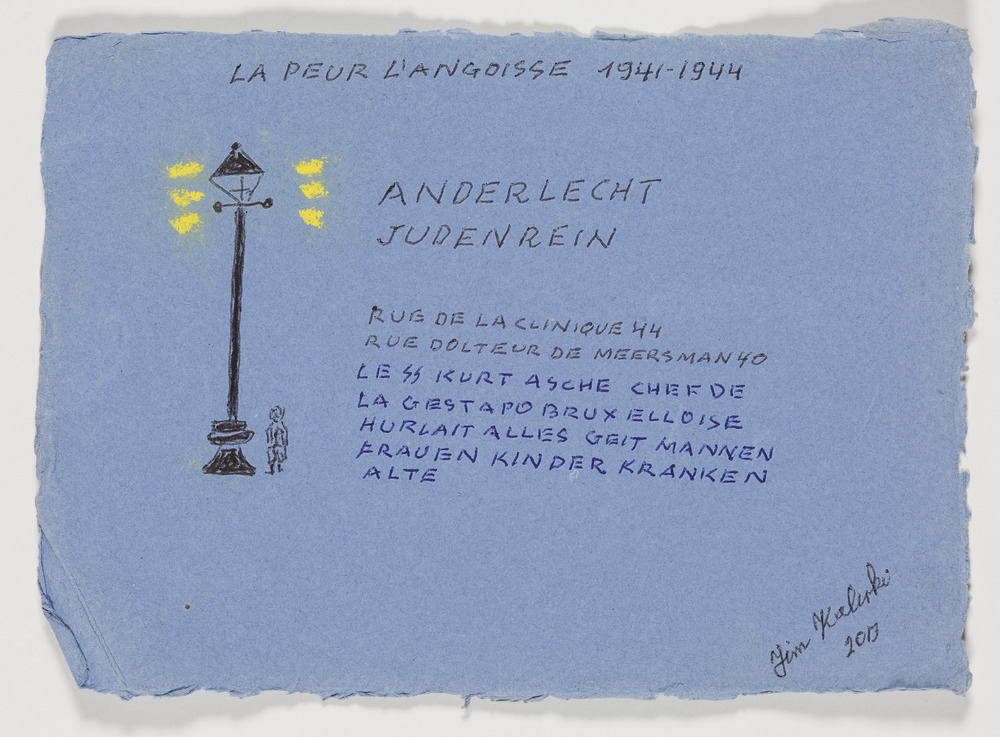 LA PEUR L'ANGOISSE 1941-1944
ANDERLECHT
JUDENREIN
RUE DE LA CLINIQUE 44
RUE DOLTEUR DE MEERSMAN 40
LE SS KURT ASCHE CHEF DE
LA GESTAPO BRUXELLOISE
HURLAIT ALLES GEIT MANNEN
FRAUEN KINDER KRANKEN
ALTE
Jim Kaliski
2013